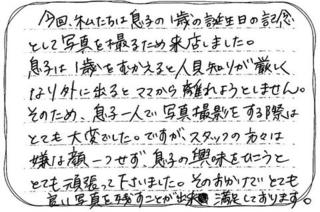 今回、私たちは息子の1歳の誕生日の記念
として写真を撮るため来店しました。
息子は1歳をむかえると人見知りが厳しく
なり外に出るとママから離れようとしません。
そのため、息子一人で写真撮影をする際は
とても大変でした。ですがスタッフの方々は
嫌な顔一つせず、息子の興味をひこうと
とても頑張って下さいました。そのおかげでとても
良い写真を残すことが出来 満足しております。